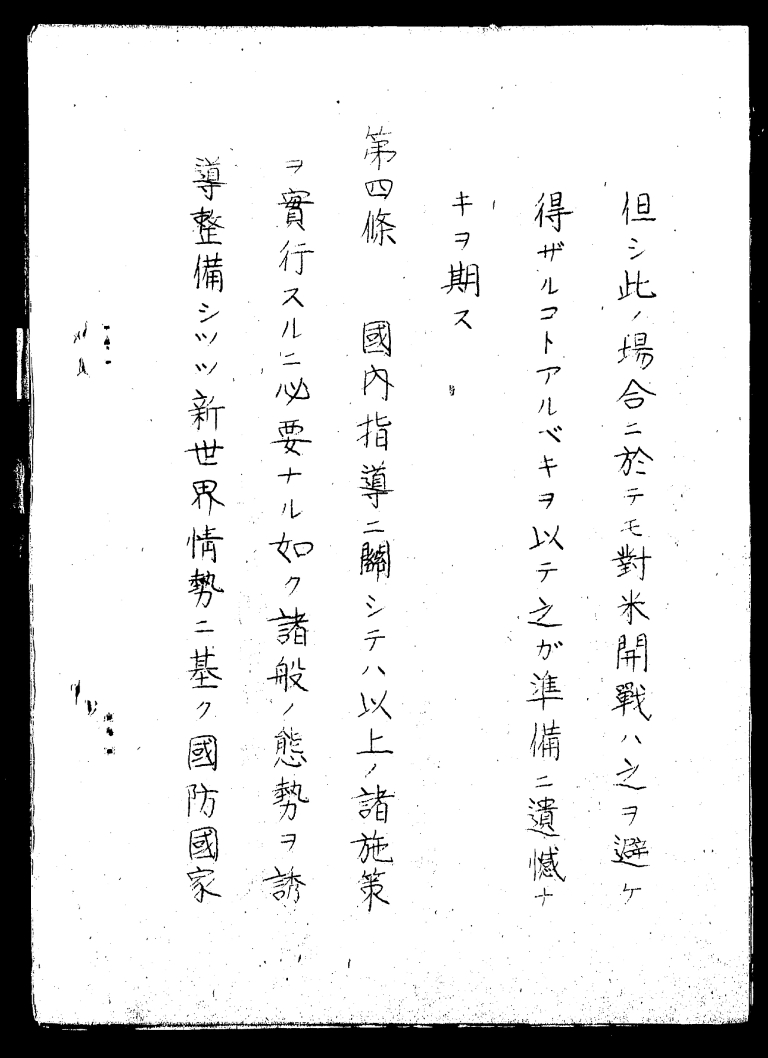 但シ此ノ場合ニ於テモ對米開戰ハ之ヲ避ケ
得ザルコトアルベキヲ以テ之ガ準備ニ遺憾ナ
キヲ期ス
第四條　國內指導ニ關シテハ以上ノ諸施策
ヲ實行スルニ必要ナル如ク諸般ノ態勢ヲ誘
導整備シツツ新世界情勢ニ基ク國防國家